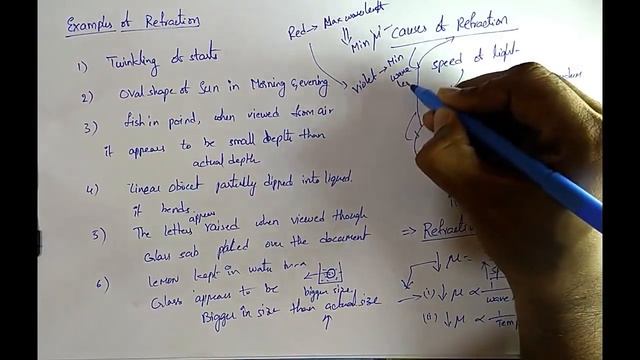 Examples of Refraction
1) Twinkling of stars
2) Oval shape of Sun in Morning & evening
3) fish in poind, when viewed from air
it appears to be small depth than
actual depth
4) Linear obocet partially dipped into liqued.
it bends.
appears
5) The letters raised when viewed though
Glass sab placed over the document
6) Lemon kept in water in a
Glass appears to be
Bigger in size than actual size
bigger size
Red → Max wavelength
Min μ
violet → Min
wave
Causes of Refraction
speed of light
⇒ Refractive
↓ μ =
(i) ↓ μ ∝ 1/wave
(ii) ↓ μ ∝ 1/Temp